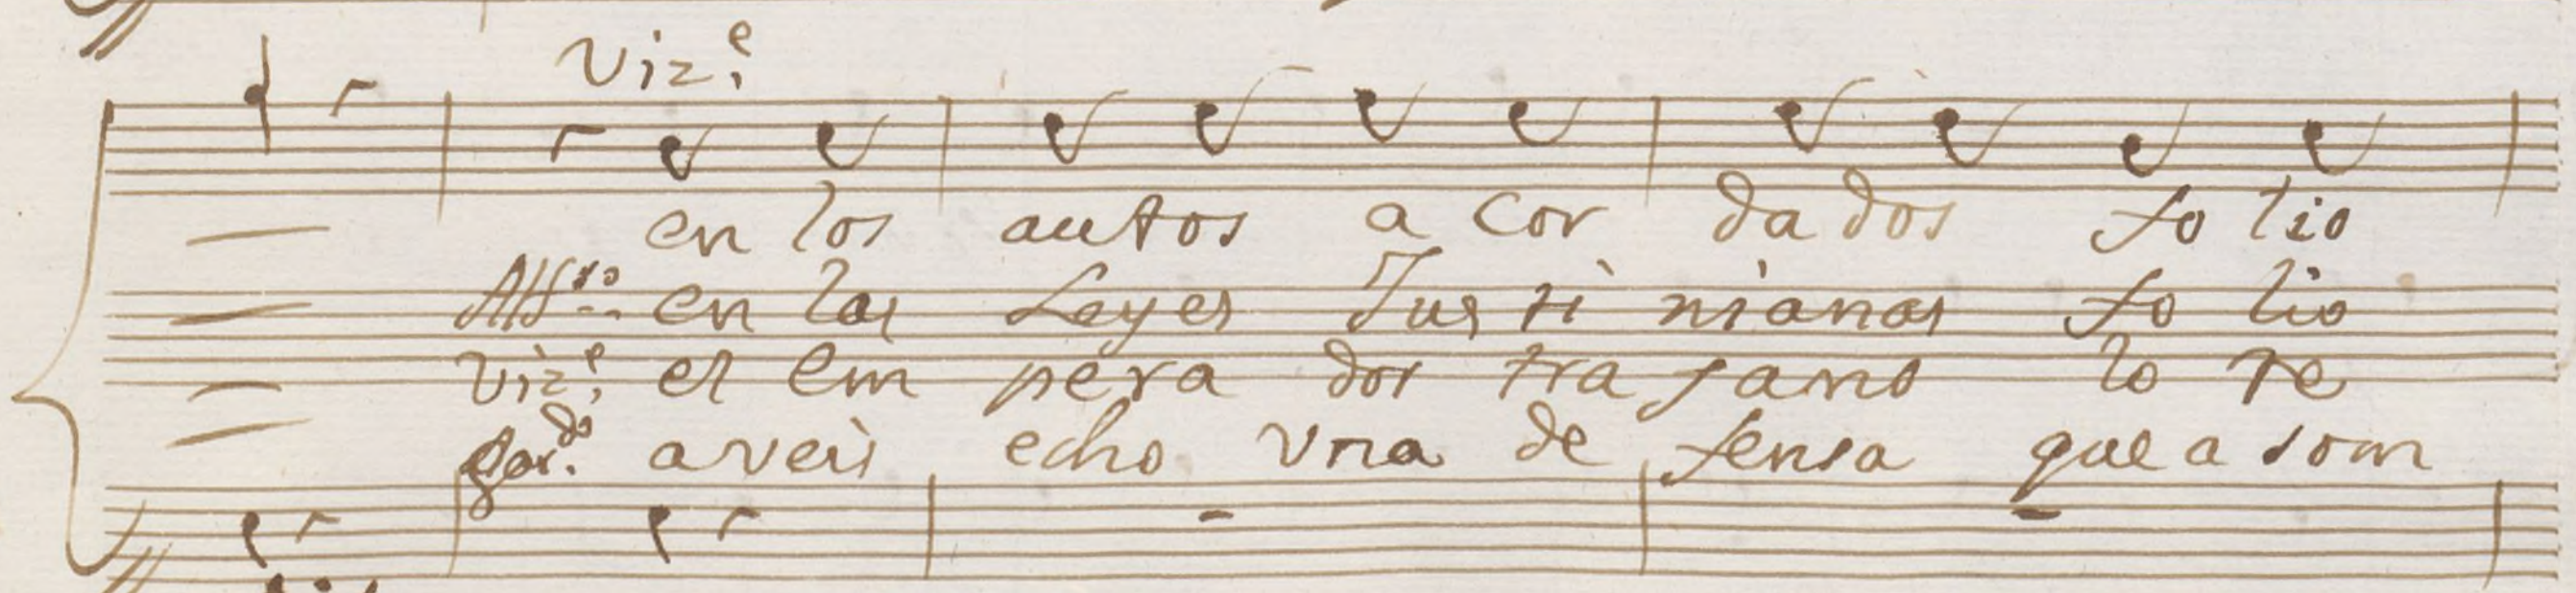 Viz.e
en los autos a cor da dos fo lio
en las Leyes Jus ti nianas fo lio
Viz.e el em pera dor tra jano lo re
aveis echo vna de fensa que a som